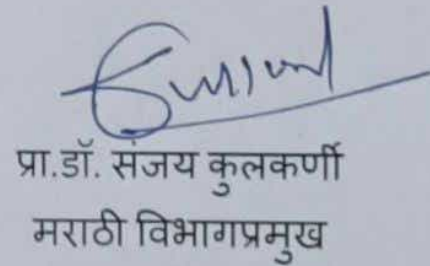 प्रा.डॉ. संजय कुलकर्णी
मराठी विभागप्रमुख